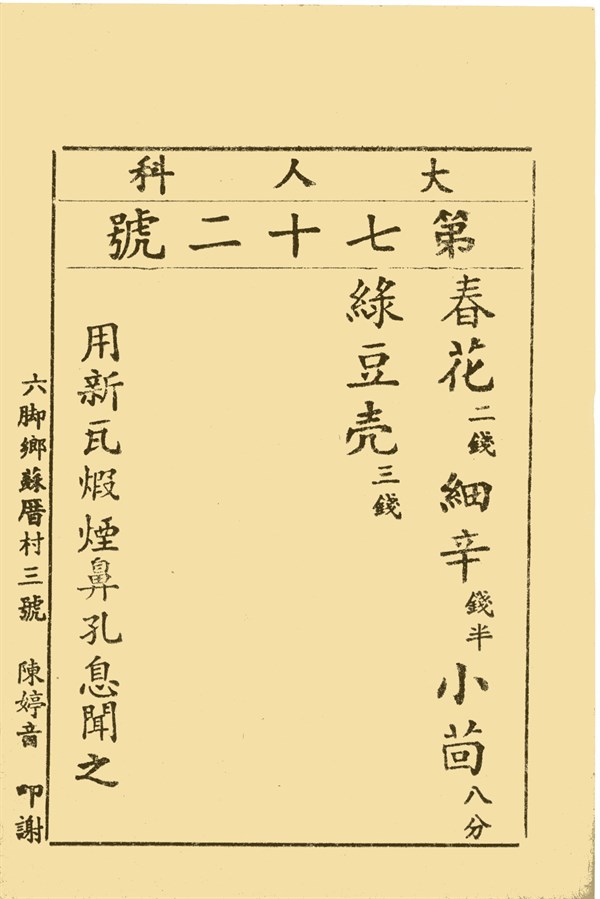 大人科
第七十二號
春花二錢 細辛錢半 小茴八分
綠豆壳三錢
用新瓦煆煙鼻孔息聞之
六脚鄉蘇厝村三號 陳婷音 叩謝